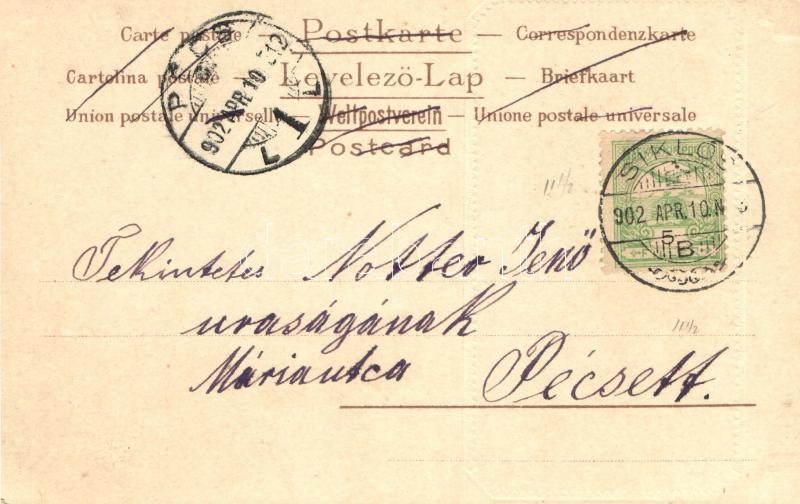 Carte postale — Postkarte — Correspondenzkarte
Cartolina postale — Levelezö-Lap — Briefkaart
Union postale universelle — Weltpostverein — Unione postale universale
Postcard
PÉCS
902 APR. 10
1
SIKLÓS
902 APR. 10. N
5
B
11½
Tekintetes Notter Jenő
uraságának
11½
Máriautca Pécsett.